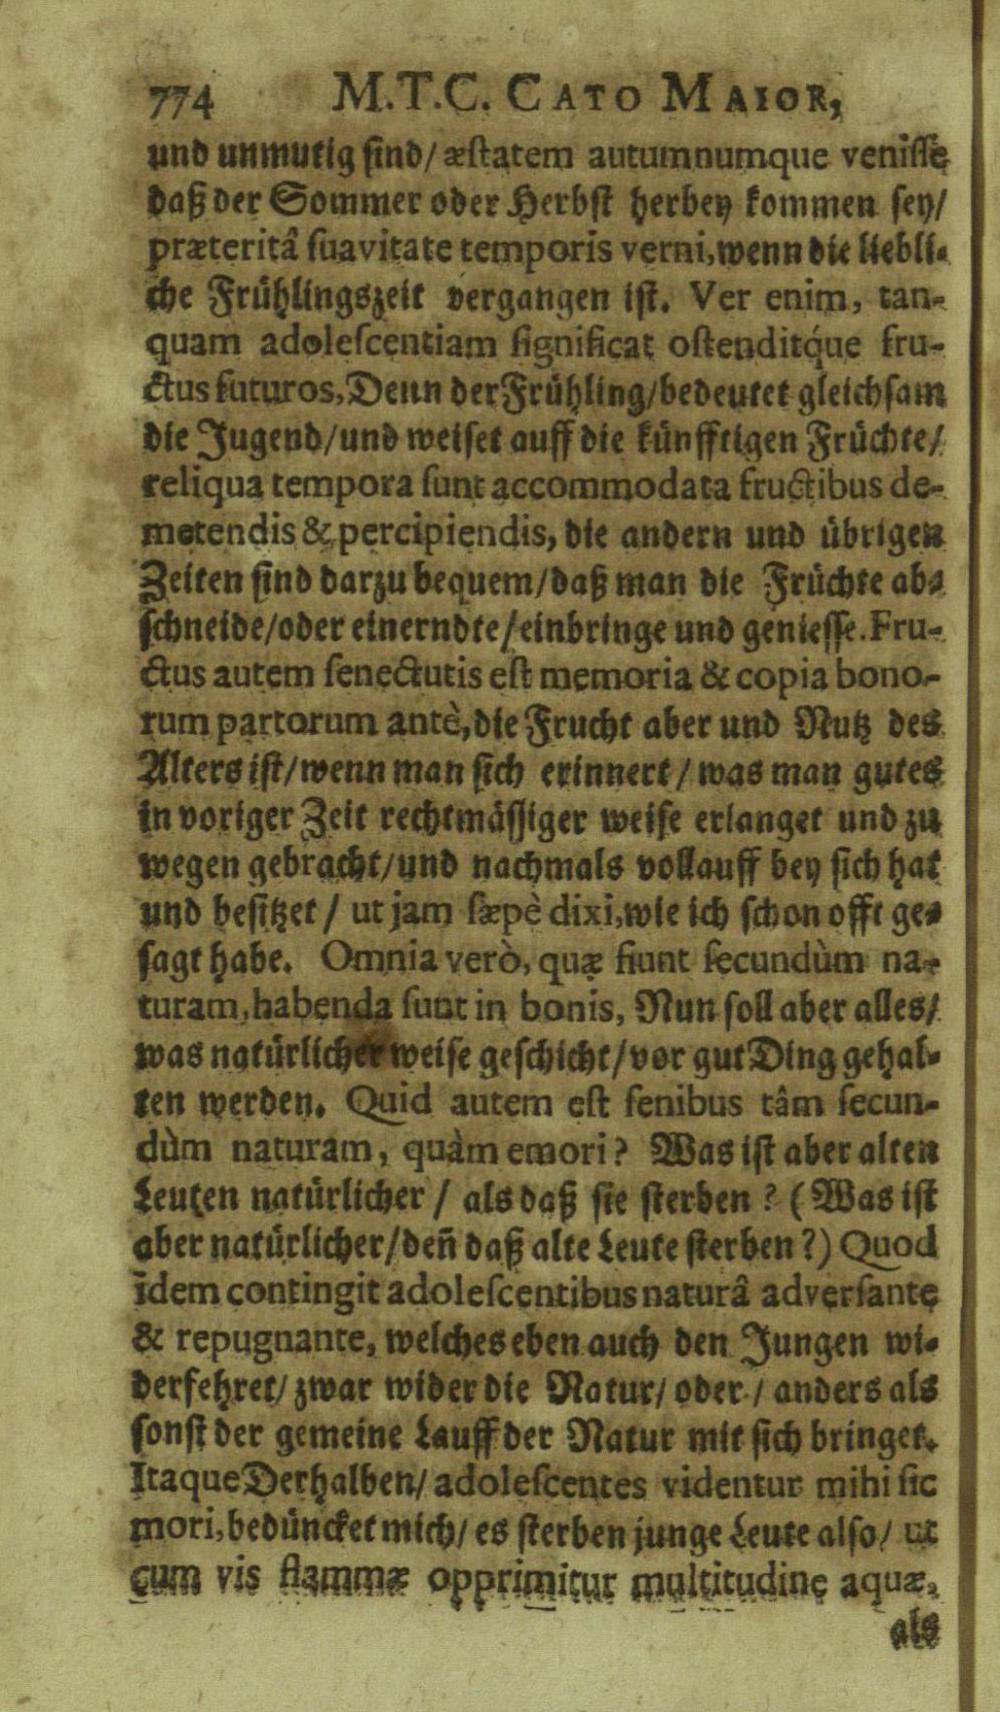 774 M.T.C. CATO MAIOR,
und unmutig sind/ æstatem autumnumque venisse
daß der Sommer oder Herbst herbey kommen sey/
præteritâ suavitate temporis verni, wenn die liebli-
che Frühlingszeit vergangen ist. Ver enim, tan-
quam adolescentiam significat ostenditq́ue fru-
ctus futuros, Denn der Frühling/ bedeutet gleichsam
die Jugend/ und weiset auff die künfftigen Früchte/
reliqua tempora sunt accommodata fructibus de-
metendis & percipiendis, die andern und übrigen
Zeiten sind darzu bequem/ daß man die Früchte ab-
schneide/ oder einerndte/ einbringe und geniesse. Fru-
ctus autem senectutis est memoria & copia bono-
rum partorum antè, die Frucht aber und Nutz des
Alters ist/ wenn man sich erinnert/ was man gutes
in voriger Zeit rechtmässiger weise erlanget und zu
wegen gebracht/ und nachmals vollauff bey sich hat
und besitzet/ ut jam sæpè dixi, wie ich schon offt ge-
sagt habe. Omnia verò, quæ fiunt secundùm na-
turam, habenda sunt in bonis, Nun soll aber alles/
was natürlicher weise geschicht/ vor gut Ding gehal-
ten werden. Quid autem est senibus tâm secun-
dùm naturam, quàm emori? Was ist aber alten
Leuten natürlicher/ als daß sie sterben? (Was ist
aber natürlicher/ deñ daß alte Leute sterben?) Quod
idem contingit adolescentibus naturâ adversante
& repugnante, welches eben auch den Jungen wi-
derfehret/ zwar wider die Natur/ oder/ anders als
sonst der gemeine Lauff der Natur mit sich bringet.
Itaque Derhalben/ adolescentes videntur mihi sic
mori, bedüncket mich/ es sterben junge Leute also/ ut
cum vis flammæ opprimitur multitudine aquæ,
als